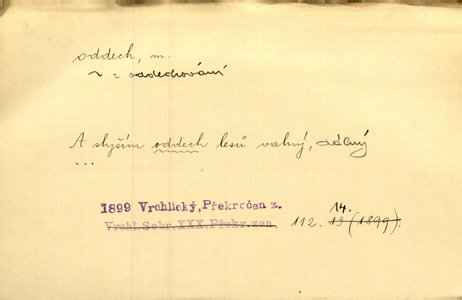 oddech, m.
~ = oddechování
A slyším oddech lesů vahný, dálný
...
14.
1899 Vrchlický, Překročen z.
Vrchl.Sebr.XXX.Překr.zen. 112. 13 (1899).